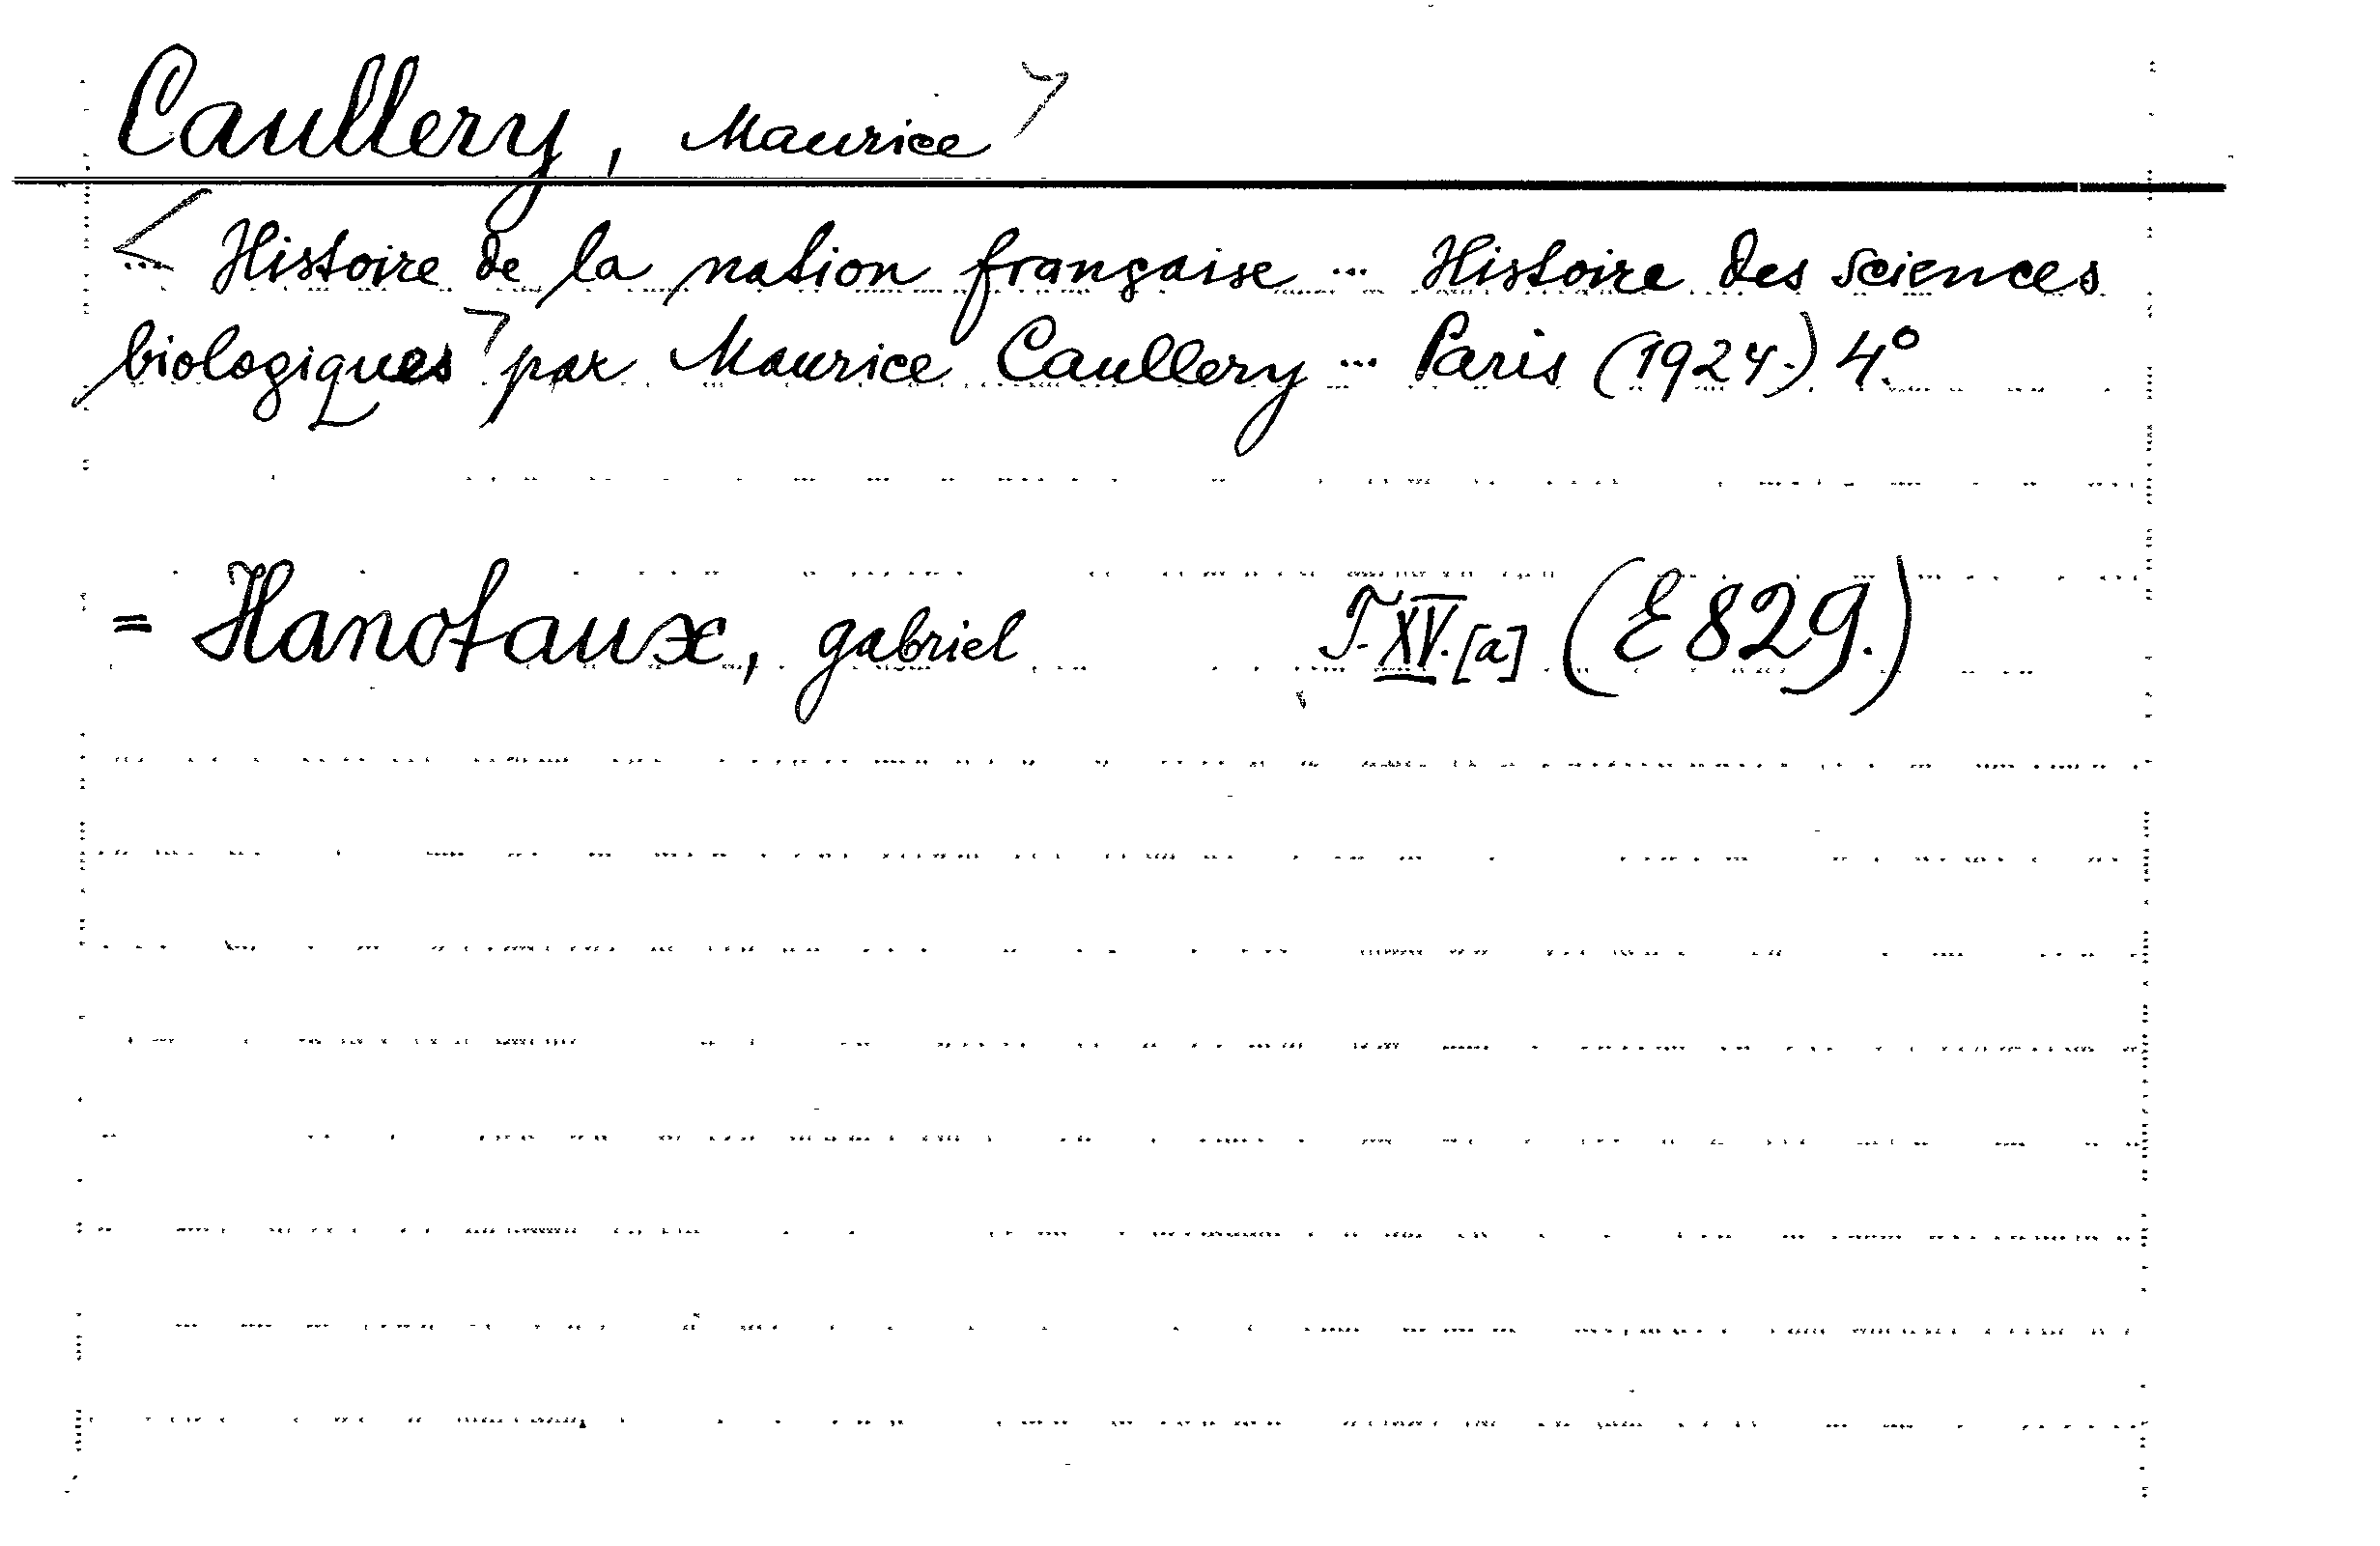 Caullery, Maurice >
< Histoire de la nation française ... Histoire des sciences
biologiques > par Maurice Caullery ... Paris (1924.) 4°.
= Hanotaux, gabriel T. XV. [a] (E 829.)